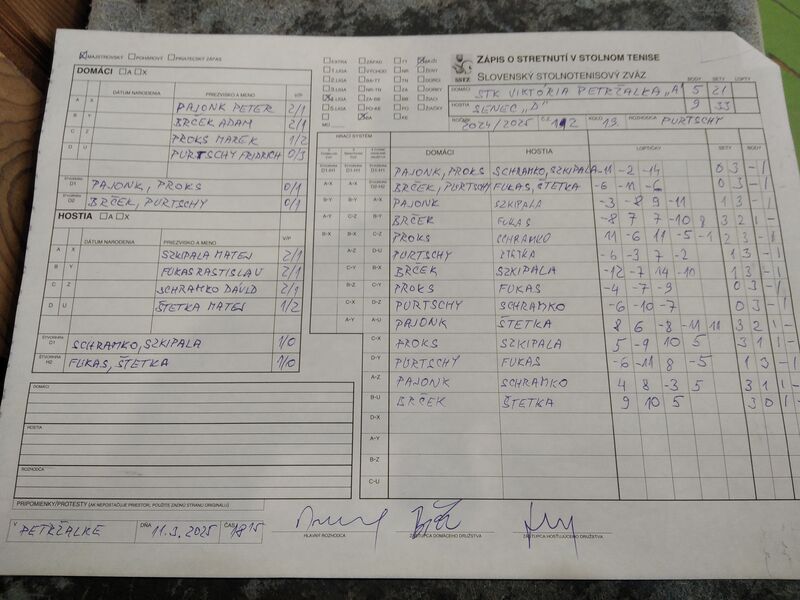 MAJSTROVSKÝ POHÁROVÝ PRIATEĽSKÝ ZÁPAS
DOMÁCI A X
DÁTUM NARODENIA PRIEZVISKO A MENO V/P
A X PAJONK PETER 2/1
B Y BRČEK ADAM 2/1
C Z PROKS MAREK 1/2
D U PURTSCHY FRIDRICH 0/3
ŠTVORHRA D1 PAJONK, PROKS 0/1
D2 BRČEK, PURTSCHY 0/1
HOSTIA A X
DÁTUM NARODENIA PRIEZVISKO A MENO V/P
A X SZKIPALA MATEJ 2/1
B Y FUKAS RASTISLAV 2/1
C Z SCHRAMKO DÁVID 2/1
D U ŠTETKA MATEJ 1/2
ŠTVORHRA SCHRAMKO, SZKIPALA 1/0
ŠTVORHRA H2 FUKAS, ŠTETKA 1/0
DOMÁCI
HOSTIA
ROZHODCA
PRIPOMIENKY/PROTESTY (AK NEPOSTAČUJE PRIESTOR, POUŽITE ZADNÚ STRANU ORIGINÁLU)
V PETRŽALKE DŇA 11.3.2025 ČAS 18 15
HLAVNÝ ROZHODCA ZÁSTUPCA DOMÁCEHO DRUŽSTVA ZÁSTUPCA HOSŤUJÚCEHO DRUŽSTVA
EXTRA ZÁPAD TN MUŽI
1.LIGA VÝCHOD NR ŽENY
2.LIGA BA-TT TN DORCI
3.LIGA NR-TN ZA DORKY
4.LIGA ZA-BB BB ŽIACI
5.LIGA PO-KE PO ŽIAČKY
BA KE
SSTZ
ZÁPIS O STRETNUTÍ V STOLNOM TENISE
SLOVENSKÝ STOLNOTENISOVÝ ZVÄZ
BODY SETY LOPTY
DOMÁCI STK VIKTÓRIA PETRŽALKA „A" 5 21
HOSTIA SENEC „D" 9 33
ROČNÍK 2024/2025 KOLO 19. ROZHODCA PURTSCHY
HRACÍ SYSTÉM
DOMÁCI HOSTIA LOPTIČKY SETY BODY
D1-H1 D1-H1 D1-H1 PAJONK, PROKS SCHRAMKO, SZKIPALA -11 -2 -14 0 3 - 1
A-X A-X D2-H2 BRČEK, PURTSCHY FUKAS, ŠTETKA -6 -11 -6 0 3 - 1
B-Y B-Y A-X PAJONK SZKIPALA -3 -8 9 -11 1 3 - 1
A-Y C-Z B-Y BRČEK FUKAS -8 7 7 -10 8 3 2 1 -
B-X B-X C-Z PROKS SCHRAMKO 11 -6 11 -5 -1 2 3 - 1
A-Z D-U PURTSCHY ŠTETKA -6 -3 7 -2 1 3 - 1
C-Y B-X BRČEK SZKIPALA -12 -7 14 -10 1 3 - 1
B-Z C-Y PROKS FUKAS -4 -7 -9 0 3 - 1
C-X D-Z PURTSCHY SCHRAMKO -6 -10 -7 0 3 - 1
A-Y A-U PAJONK ŠTETKA 8 6 -8 -11 11 3 2 1 -
C-X PROKS SZKIPALA 5 -9 10 5 3 1 1 -
D-Y PURTSCHY FUKAS -6 -11 8 -5 1 3 - 1
A-Z PAJONK SCHRAMKO 4 8 -3 5 3 1 1 -
B-U BRČEK ŠTETKA 9 10 5 3 0 1 -
D-X
A-Y
B-Z
C-U